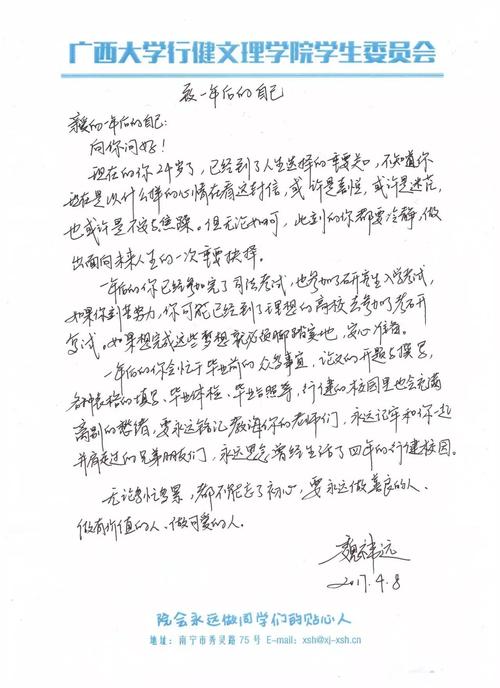 广西大学行健文理学院学生委员会
致一年后的自己
亲爱的一年后的自己:
向你问好!
现在的你24岁了,已经到了人生选择的重要关口,不知道你
现在是以什么样的心情在看这封信,或许是喜悦,或许是迷茫,
也或许是不安与焦躁。但无论如何,此刻的你都要冷静,做
出面向未来人生的一次重要抉择。
一年后的你已经参加完了司法考试,也参加了研究生入学考试,
如果你刻苦努力,你可能已经到了理想的高校去参加了考研
复试。如果想完成这些梦想就必须脚踏实地,安心准备。
一年后的你会忙于毕业前的众多事宜,论文的开题与撰写,
各种表格的填写、毕业体检、毕业合照等,行健的校园里也会充满
离别的愁绪,要永远铭记教诲你的老师们,永远记牢和你一起
并肩走过的兄弟朋友们,永远思念曾经生活了四年的行健校园。
无论多忙多累,都不能忘了初心,要永远做善良的人、
做有价值的人、做可爱的人。
魏祎远
2017.4.8
院会永远做同学们的贴心人
地址:南宁市秀灵路 75 号 E-mail: xsh@xj-xsh.cn